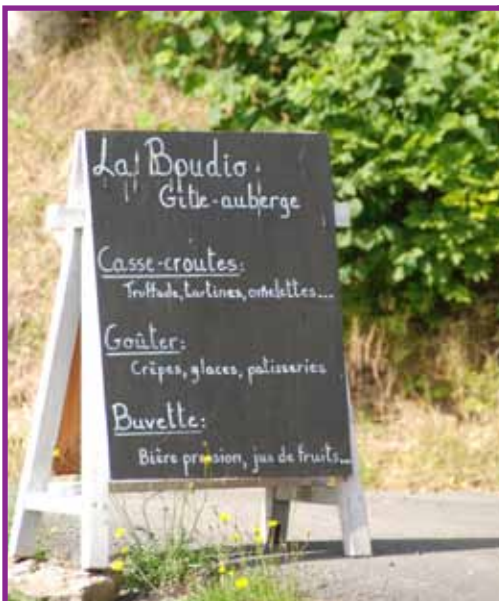 La Boudio.
Gîte-auberge
Casse-croutes:
Truffade, tartines, omelettes...
Goûter:
Crêpes, glaces, patisseries
Buvette:
Bière pression, jus de fruits...